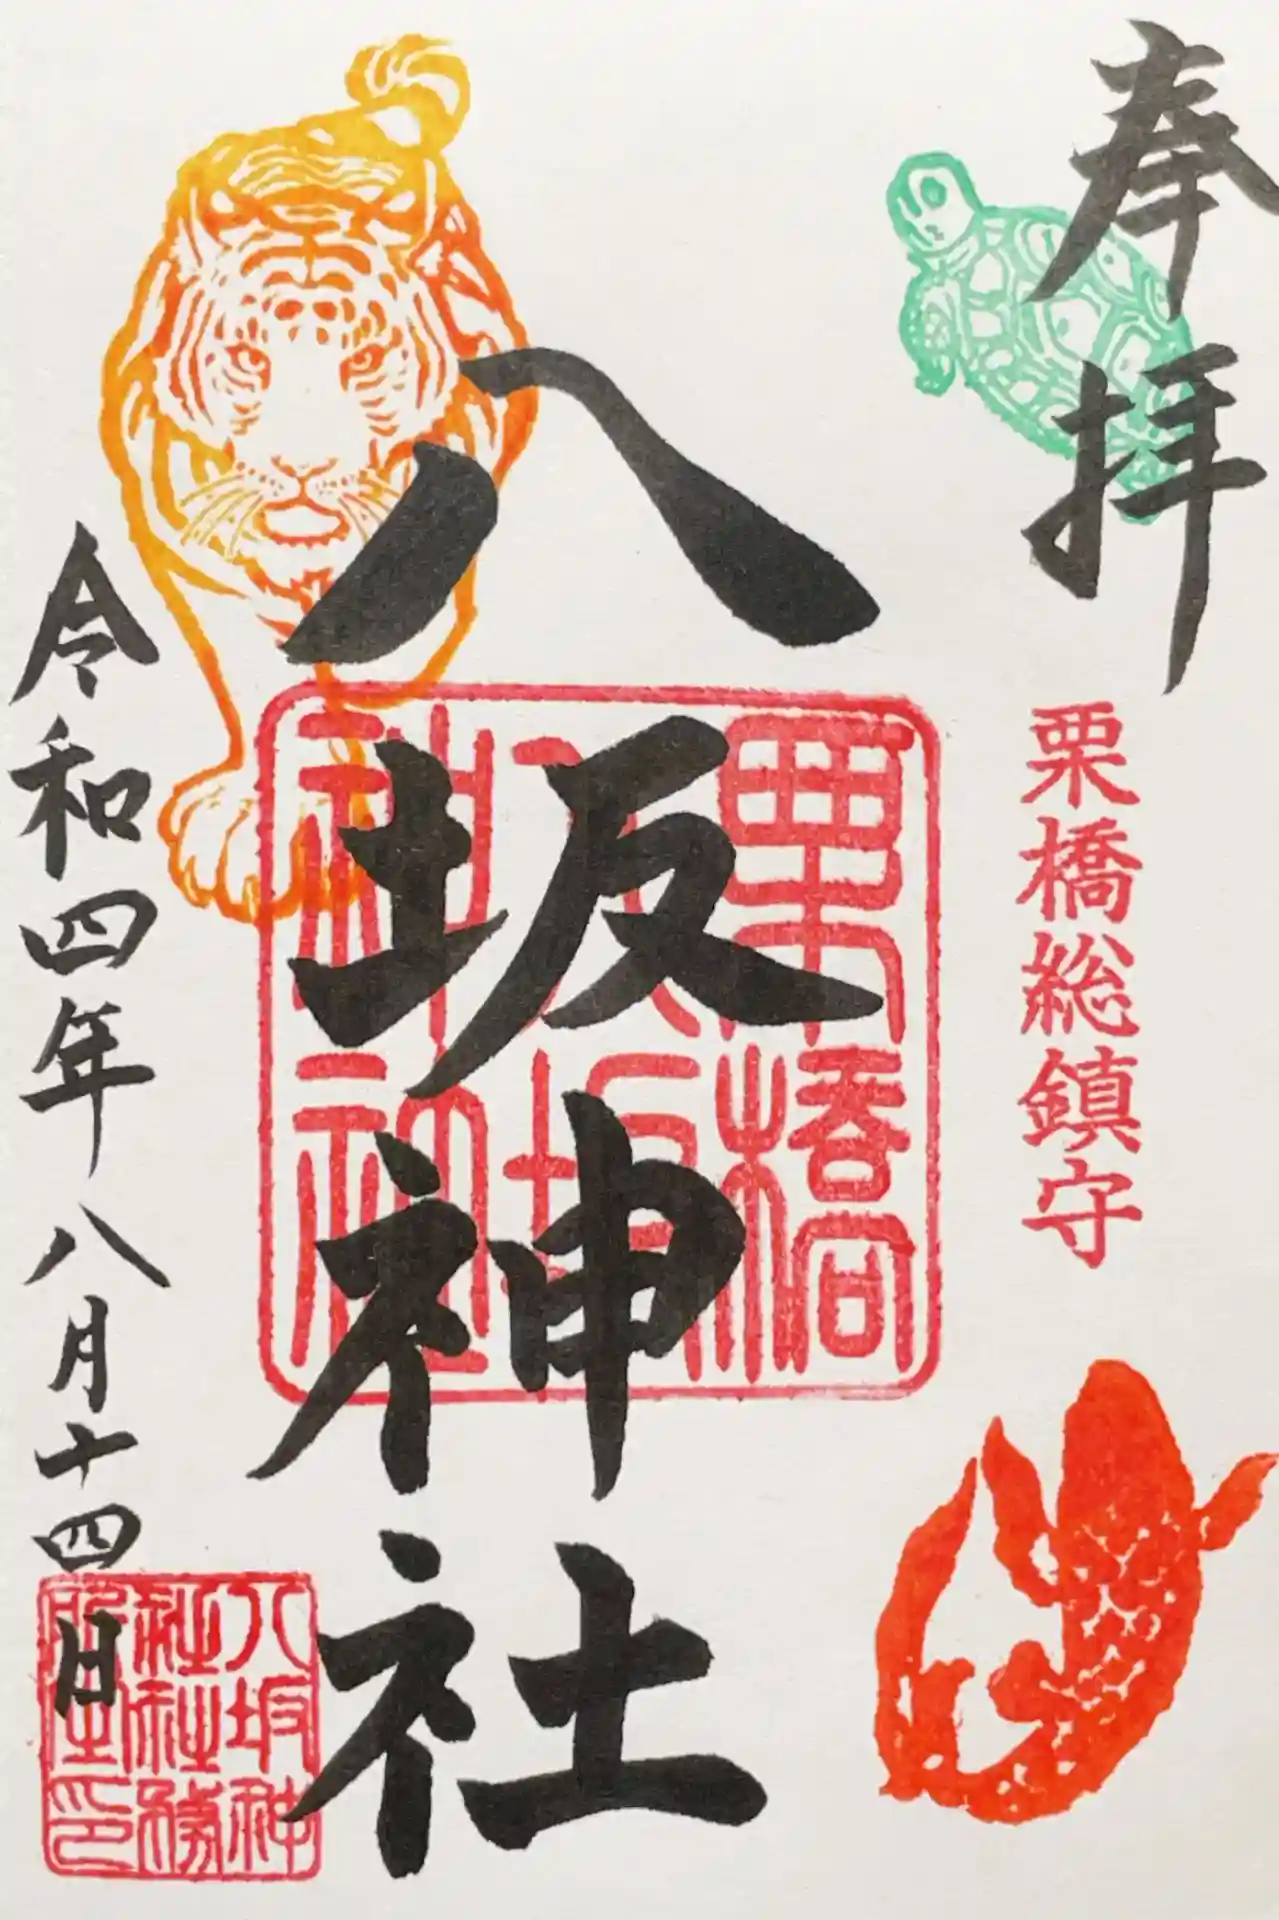 奉拝
栗橋総鎮守
八坂神社
栗橋
八坂
神社
令和四年八月十四日
八坂神
社社務
之印